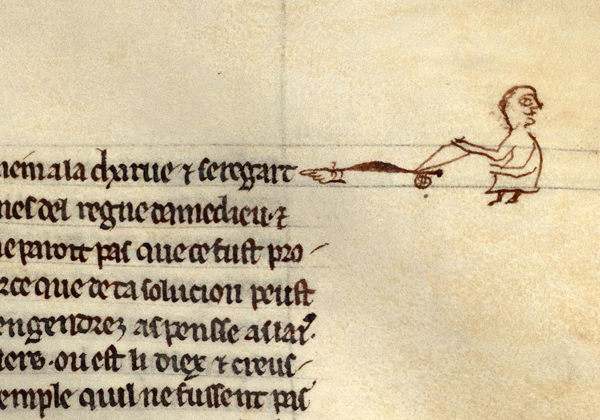 mein a la charue ⁊ se regart
nes del regne damedieu ⁊
e paroit pas que ce fust pro
rce que de ta solucion peust
engendrez
iers . ou est li diex ⁊ creus
emple quil ne fussent pas